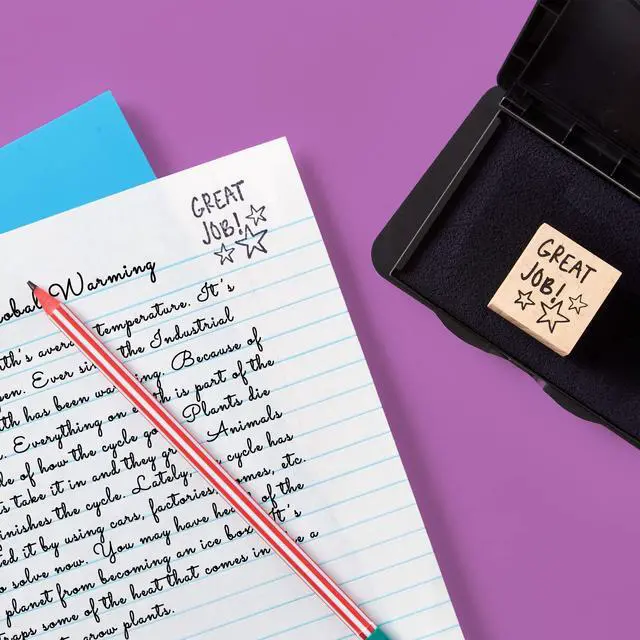 GREAT
JOB!
Warming
temperature. It's
Ever the Industrial
has been Because of
Everything on is part of the
of how the cycle Plants die
take it in and they Animals
the cycle. Lately, cycle has
it by using cars, factories, etc.
solve now. You may have of the
planet from becoming an ice box. It's
some of the heat that comes in a
grow plants.
GREAT
JOB!